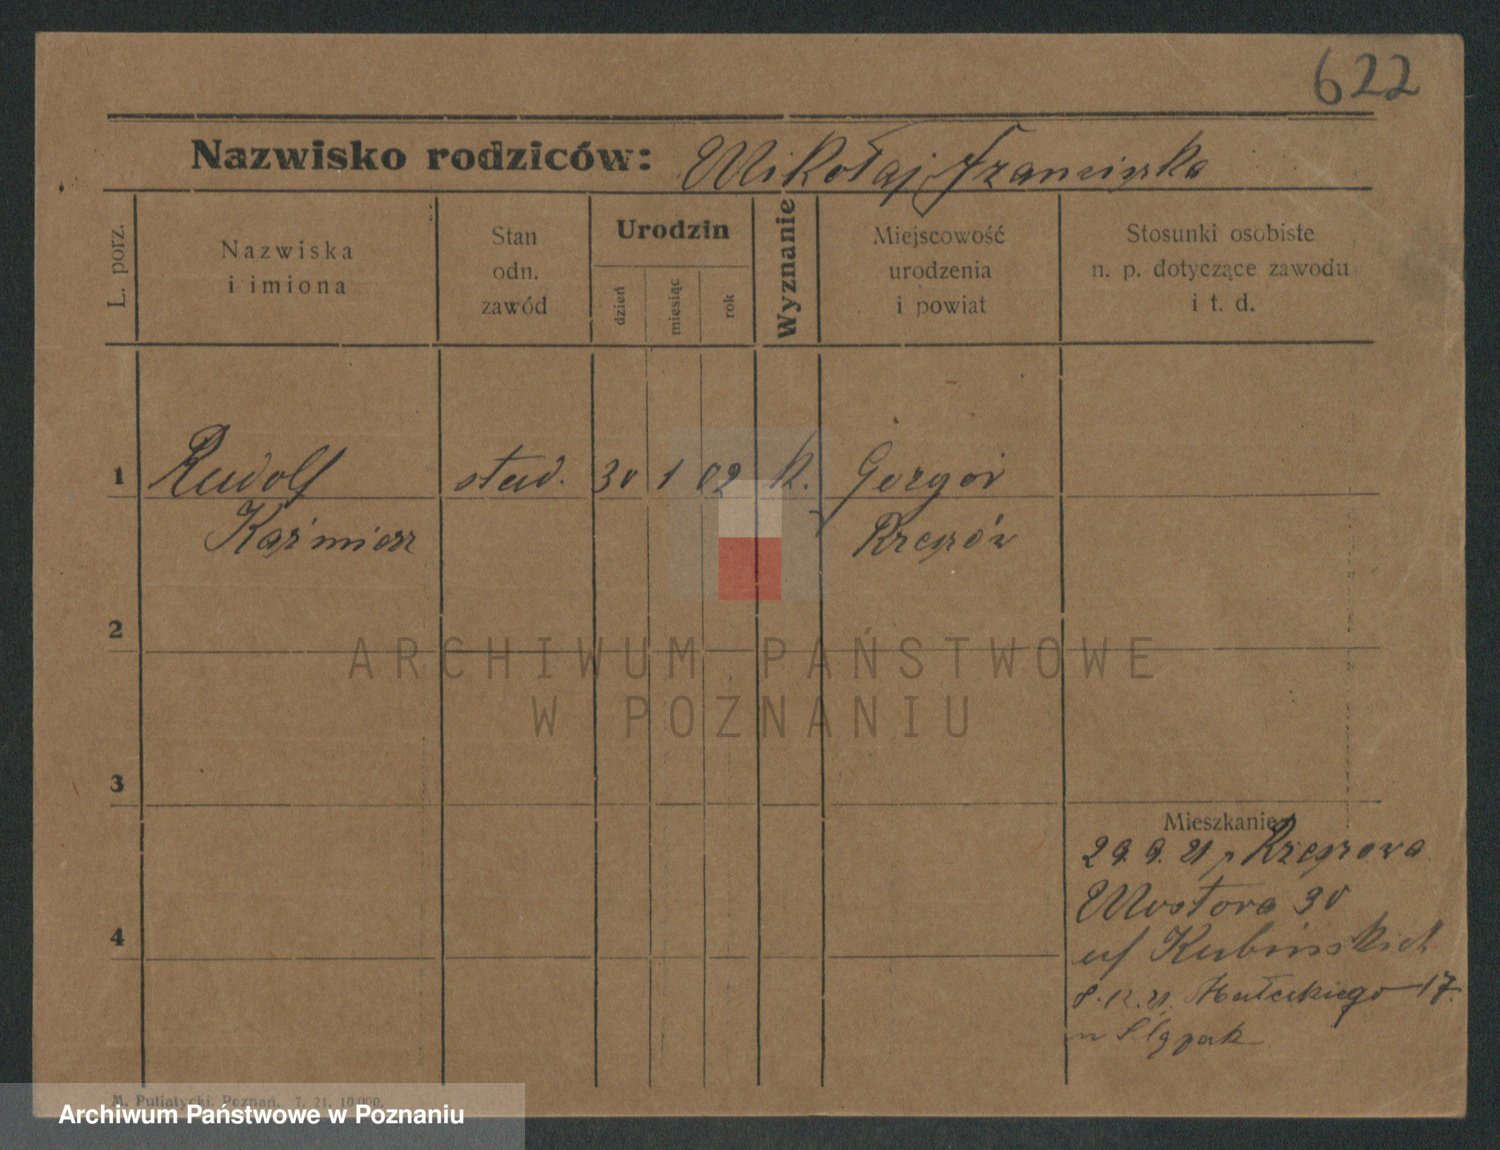 622
Nazwisko rodziców: Mikołaj, Franciszka
L. porz.
Nazwiska
i imiona
Stan
odn.
zawód
Urodzin
dzień
miesiąc
rok
Wyznanie
Miejscowość
urodzenia
i powiat
Stosunki osobiste
n. p. dotyczące zawodu
i t. d.
1 Rudolf stud. 30 1 02 k.
Kaźmierz
2
ARCHIWUM PAŃSTWOWE
W POZNANIU
3
Mieszkanie:
29.9.21
Mostowa 30
4
8.12.21. Małeckiego 17.
M. Putiatycki, Poznań. 7. 21. 10.000.
Archiwum Państwowe w Poznaniu